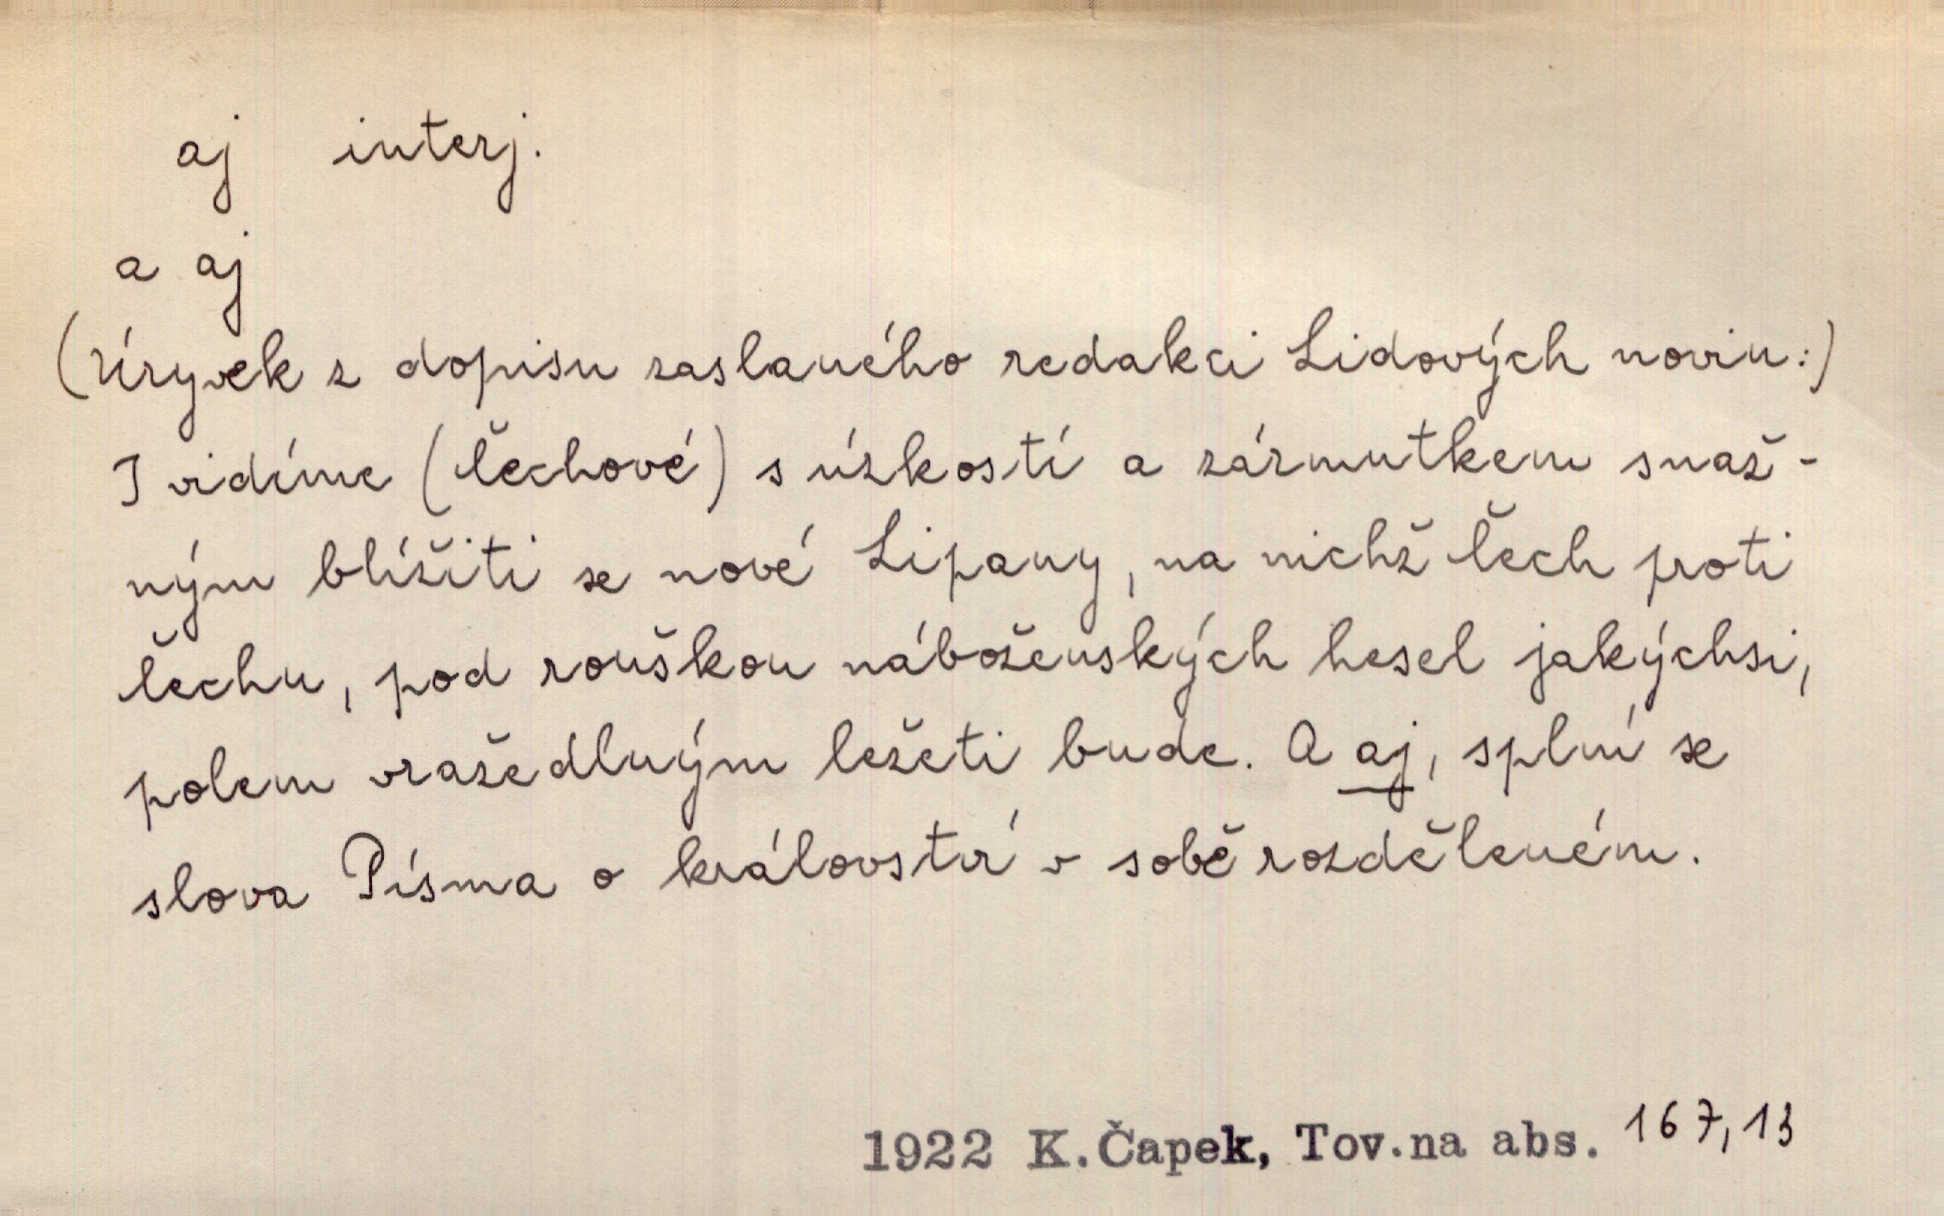 aj interj.
a aj
(Úryvek z dopisu zaslaného redakci Lidových novin:)
I vidíme (Čechové) s úzkostí a zármutkem snaž-
ným blížiti se nové Lipany, na nichž Čech proti
Čechu, pod rouškou náboženských hesel jakýchsi,
polem vražedlným ležeti bude. A aj, splní se
slova Písma o království v sobě rozděleném.
1922 K.Čapek, Tov.na abs. 167,13